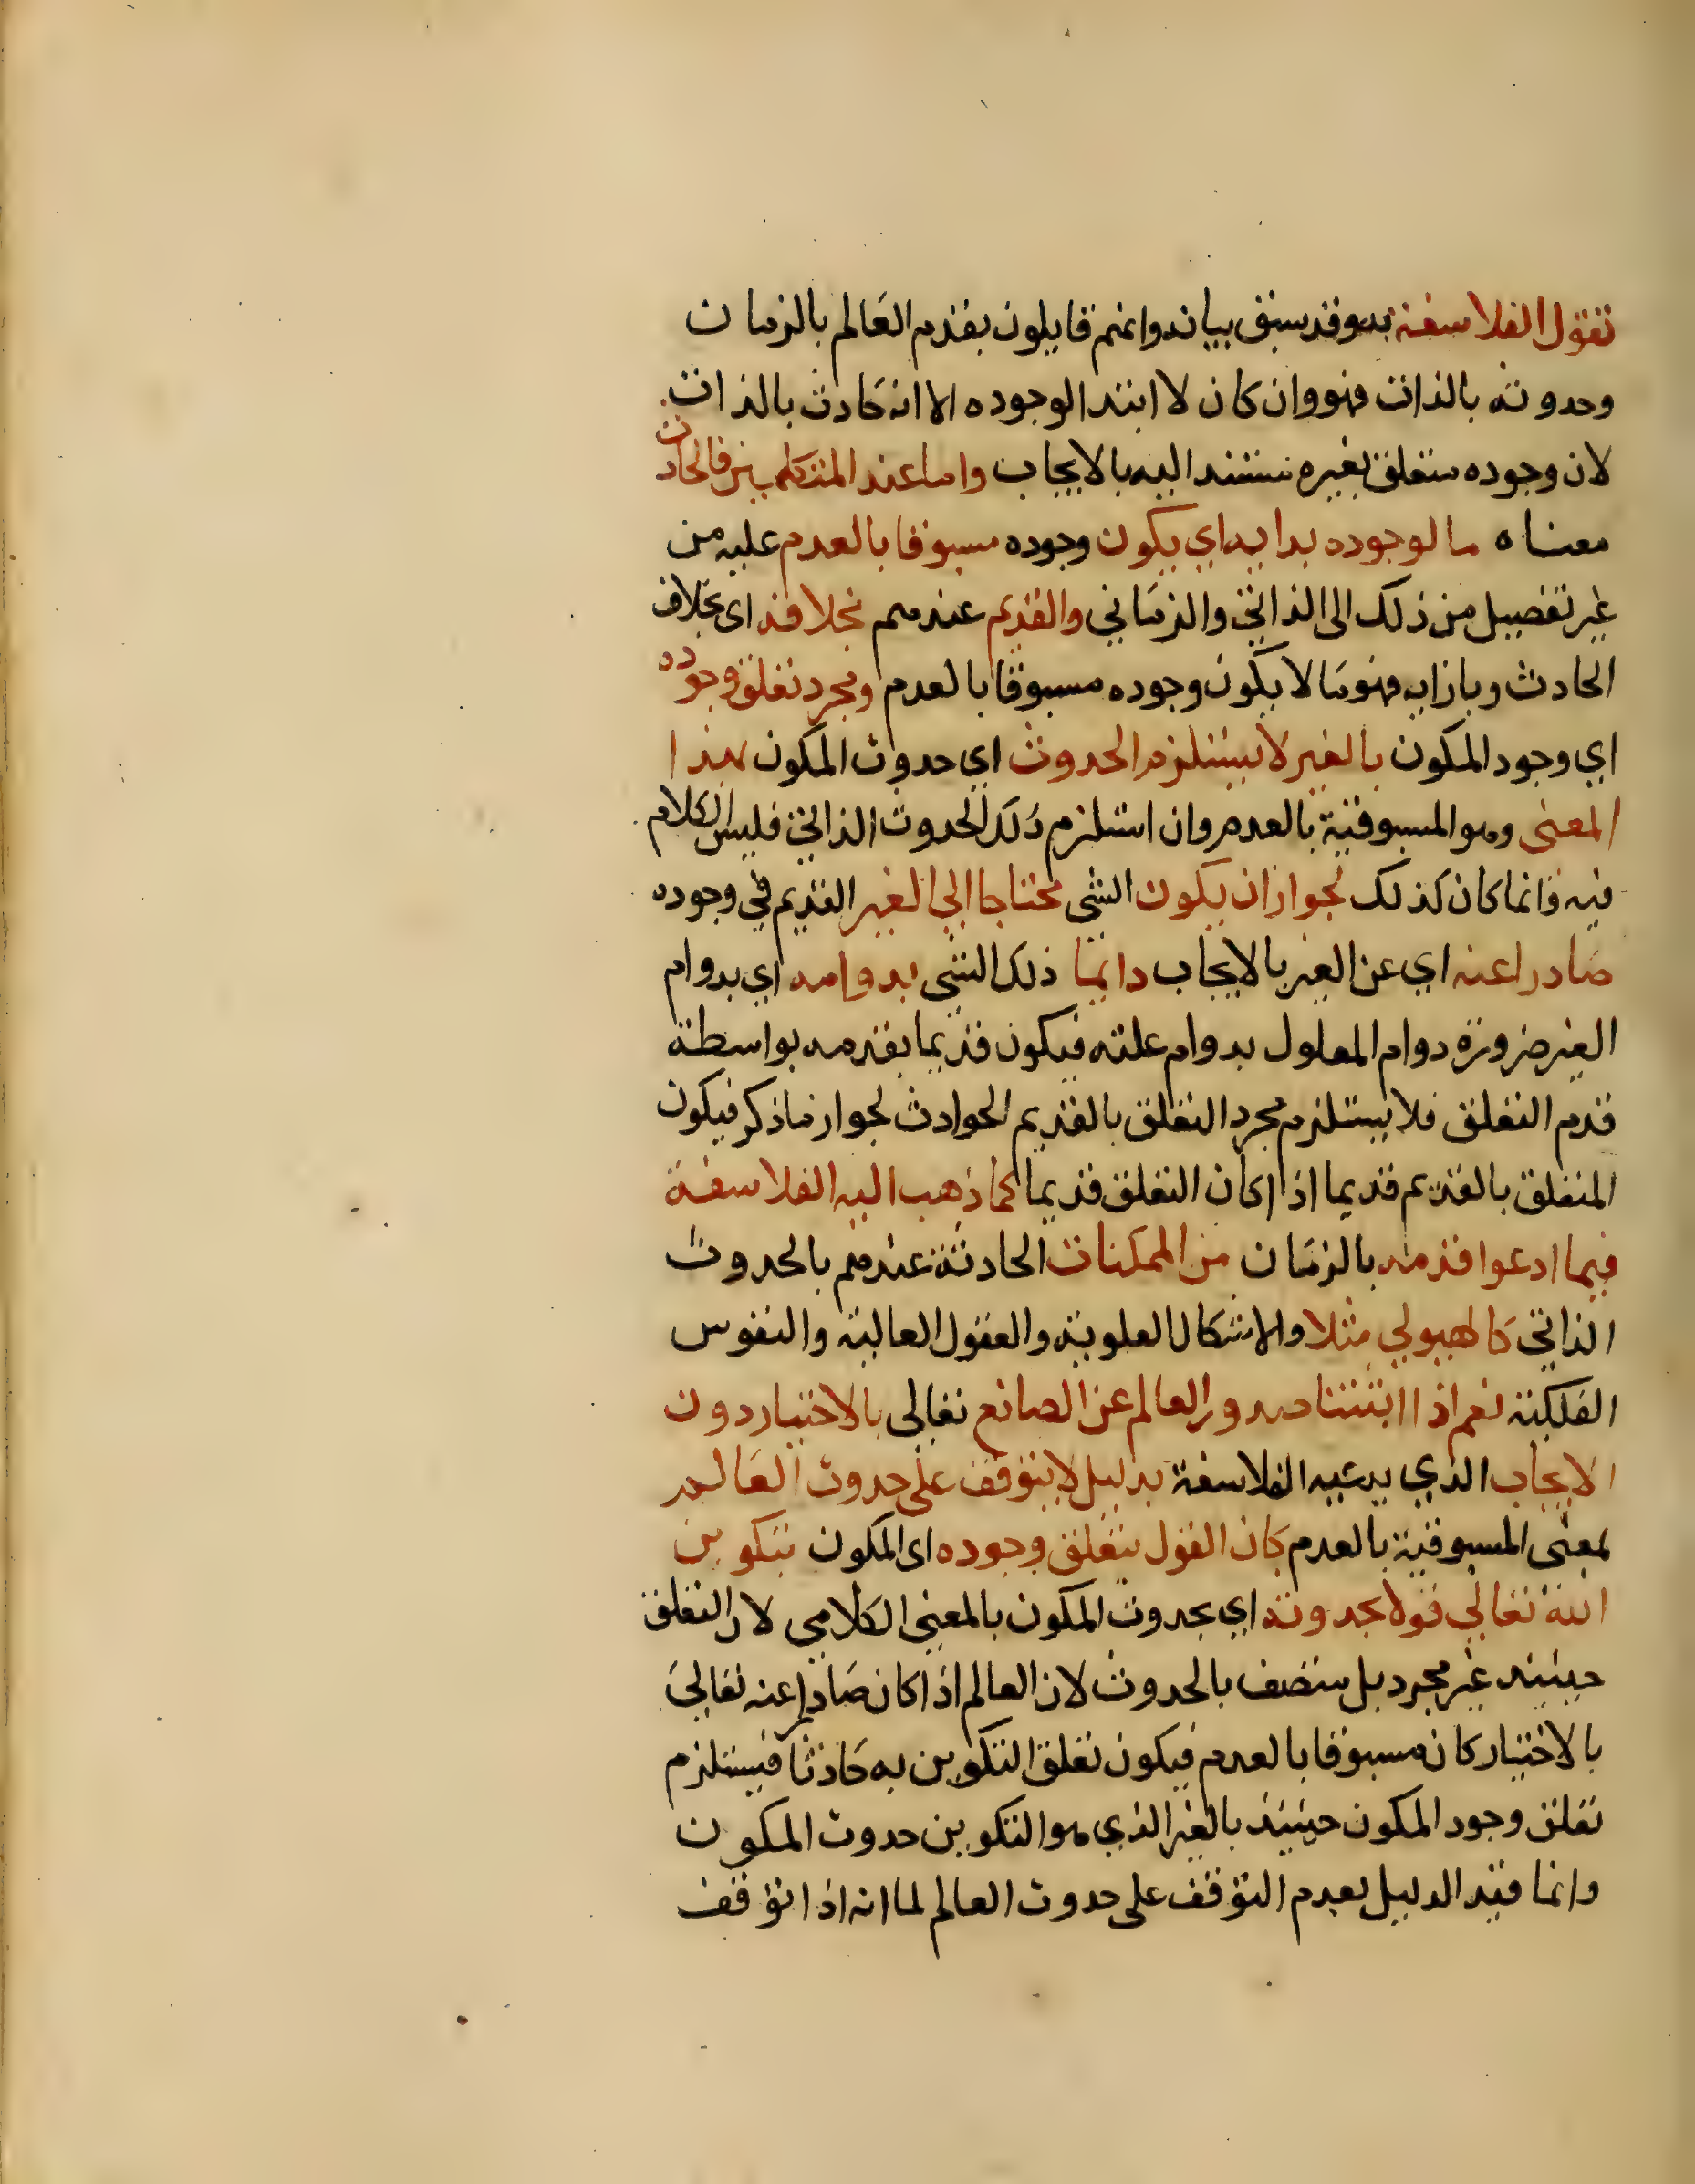 تقول الفلاسفة به وقد سبق بيانه وانهم قايلون بقدم العالم بالزمان
وحدوثه بالذات فهو وان كان لا ابتدا لوجوده الا انه حادث بالذات
لان وجوده متعلق بغيره مستند اليه بالايجاب واما عند المتكلمين فالحادث
معناه ما لوجوده بداية اي يكون وجوده مسبوقا بالعدم عليه من
غير تفصيل من ذلك الى الذاتي والزماني والقديم عندهم بخلافه اى بخلاف
الحادث وبازايه فهو ما لا يكون وجوده مسبوقا بالعدم ومجرد تعلق وجوده
اي وجود المكون بالغير لا يستلزم الحدوث اي حدوث المكون بهذا
المعنى وهو المسبوقية بالعدم وان استلزم ذلك الحدوث الذاتي فليس الكلام
فيه وانما كان كذلك لجواز ان يكون الشي محتاجا الي الغير القديم في وجوده
صادرا عنه اي عن الغير بالايجاب دايما ذلك الشي بدوامه اي بدوام
الغير ضرورة دوام المعلول بدوام علته فيكون قديما بقدمه بواسطة
قدم التعلق فلا يستلزم مجرد التعلق بالقديم الحوادث لجواز ما ذكر فيكون
المتعلق بالقديم قديما اذا كان التعلق قديما كما ذهب اليه الفلاسفة
فيما ادعوا قدمه بالزمان من الممكنات الحادثة عندهم بالحدوث
الذاتي كالهيولي مثلا والاشكال العلوية والعقول العالية والنفوس
الفلكية نعم اذا اثبتنا صدور العالم عن الصانع تعالى بالاختيار دون
الايجاب الذي يدعيه الفلاسفة بدليل لا يتوقف على حدوث العالم
بمعنى المسبوقية بالعدم كان القول بتعلق وجوده اى المكون بتكوين
الله تعالي قولا بحدوثه اي بحدوث المكون بالمعنى الكلامي لان التعلق
حينيذ غير مجرد بل متصف بالحدوث لان العالم اذا كان صادرا عنه تعالي
بالاختيار كان مسبوقا بالعدم فيكون تعلق التكوين به حادثا فيستلزم
تعلق وجود المكون حينيذ بالغير الذي هو التكوين حدوث المكون
وانما قيد الدليل بعدم التوقف على حدوث العالم لما انه اذا توقف